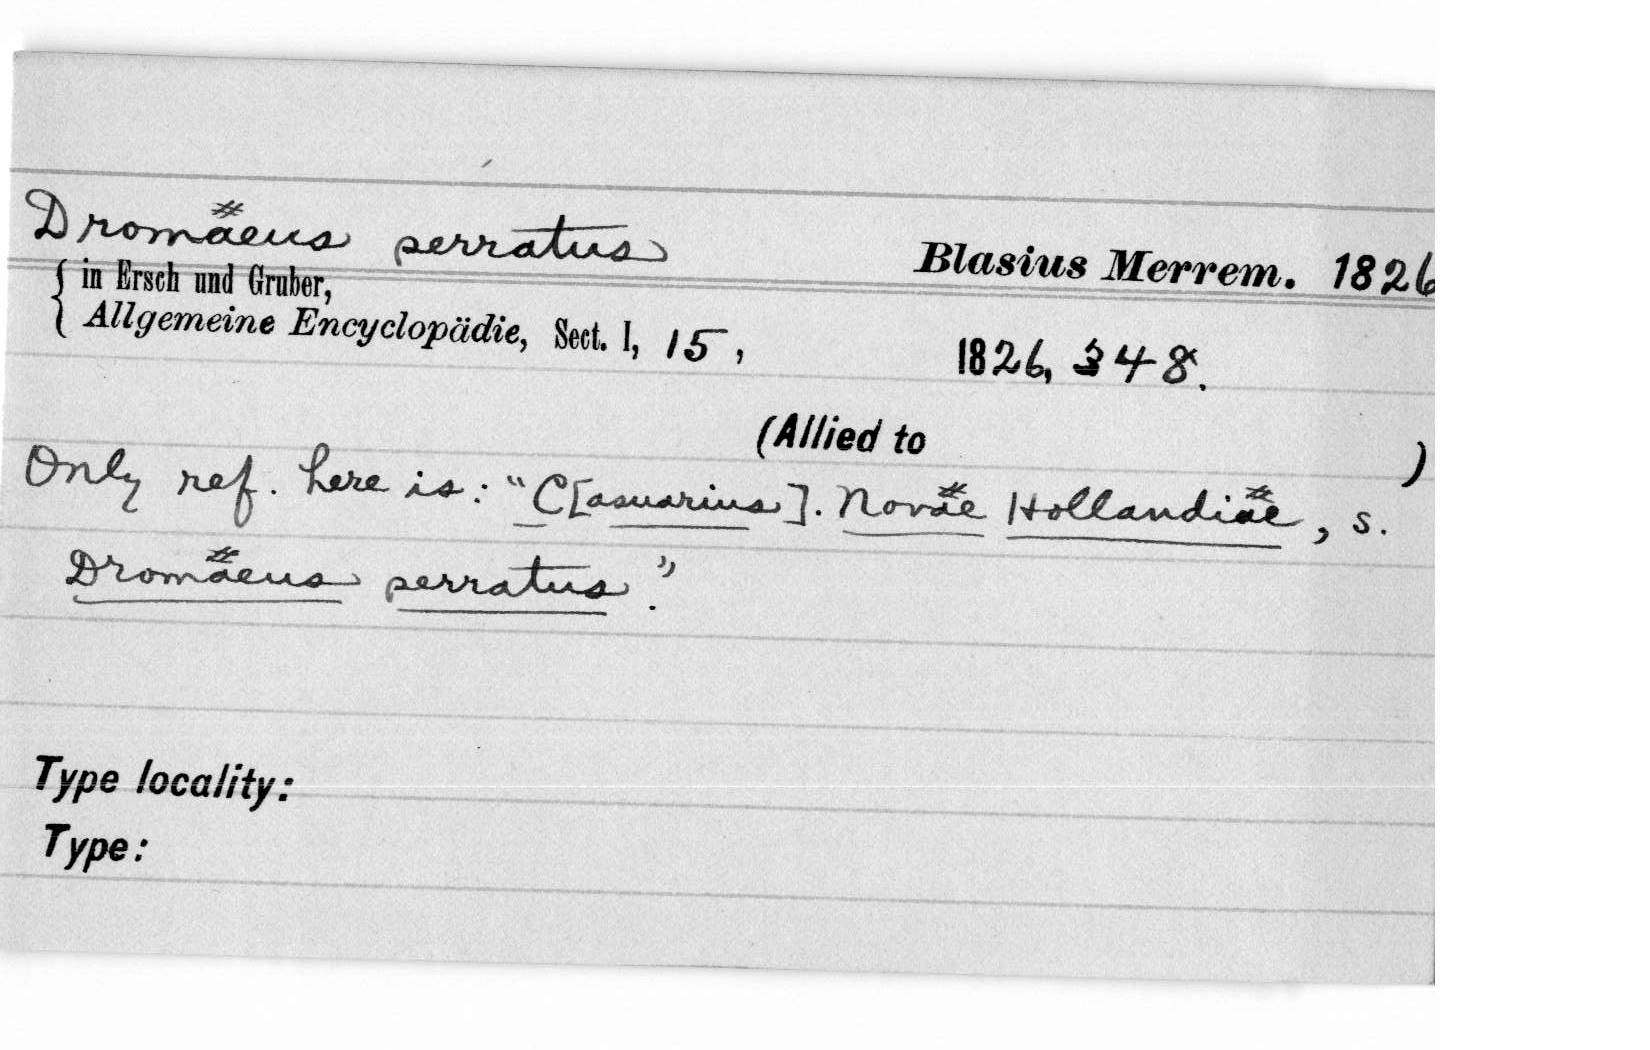 Dromaeus serratus Blasius Merrem. 1826
in Ersch und Gruber,
Allgemeine Encyclopädie, Sect. I, 15, 1826, 348.
(Allied to )
Only ref. here is: "C[asuarius]. Novae Hollandiae, s.
Dromaeus serratus."
Type locality:
Type: